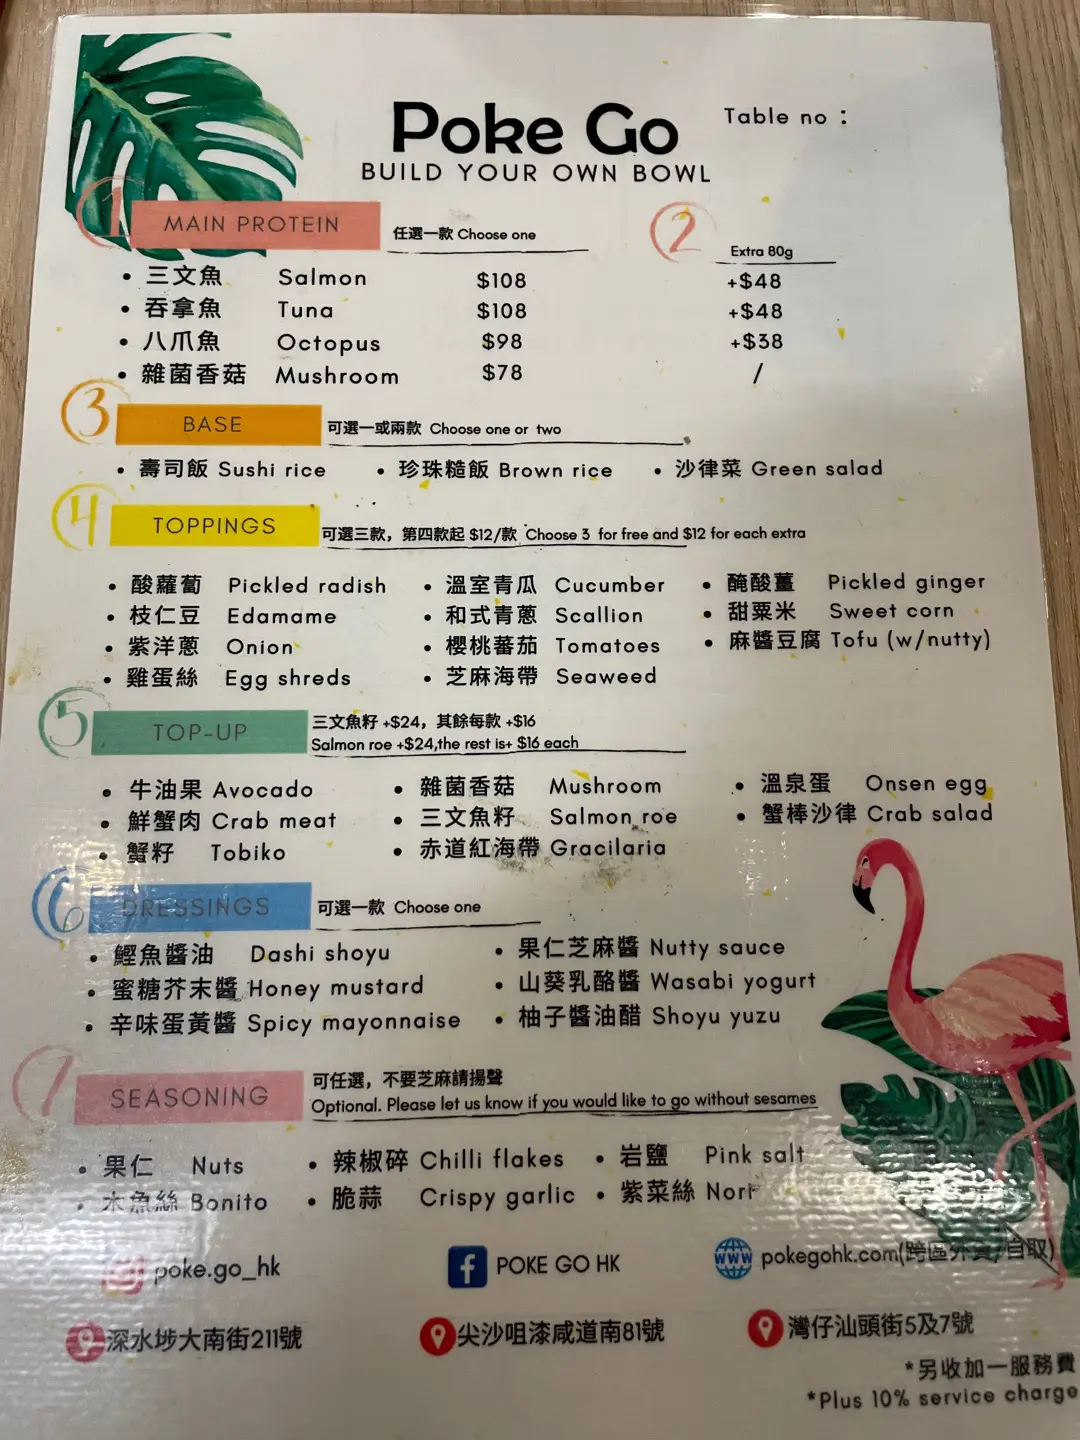 Poke Go
Table no :
BUILD YOUR OWN BOWL
1 MAIN PROTEIN 任選一款 Choose one 2 Extra 80g
• 三文魚 Salmon $108 +$48
• 吞拿魚 Tuna $108 +$48
• 八爪魚 Octopus $98 +$38
• 雜菌香菇 Mushroom $78 /
3 BASE 可選一或兩款 Choose one or two
• 壽司飯 Sushi rice • 珍珠糙飯 Brown rice • 沙律菜 Green salad
4 TOPPINGS 可選三款，第四款起 $12/款 Choose 3 for free and $12 for each extra
• 酸蘿蔔 Pickled radish • 溫室青瓜 Cucumber • 醃酸薑 Pickled ginger
• 枝仁豆 Edamame • 和式青蔥 Scallion • 甜粟米 Sweet corn
• 紫洋蔥 Onion • 櫻桃蕃茄 Tomatoes • 麻醬豆腐 Tofu (w/nutty)
• 雞蛋絲 Egg shreds • 芝麻海帶 Seaweed
5 TOP-UP 三文魚籽 +$24，其餘每款 +$16
Salmon roe +$24,the rest is+ $16 each
• 牛油果 Avocado • 雜菌香菇 Mushroom • 溫泉蛋 Onsen egg
• 鮮蟹肉 Crab meat • 三文魚籽 Salmon roe • 蟹棒沙律 Crab salad
• 蟹籽 Tobiko • 赤道紅海帶 Gracilaria
6 DRESSINGS 可選一款 Choose one
• 鰹魚醬油 Dashi shoyu • 果仁芝麻醬 Nutty sauce
• 蜜糖芥末醬 Honey mustard • 山葵乳酪醬 Wasabi yogurt
• 辛味蛋黃醬 Spicy mayonnaise • 柚子醬油醋 Shoyu yuzu
7 SEASONING 可任選，不要芝麻請揚聲
Optional. Please let us know if you would like to go without sesames
• 果仁 Nuts • 辣椒碎 Chilli flakes • 岩鹽 Pink salt
• 木魚絲 Bonito • 脆蒜 Crispy garlic • 紫菜絲 Nori
poke.go_hk POKE GO HK www pokegohk.com(跨區外賣/自取)
深水埗大南街211號 尖沙咀漆咸道南81號 灣仔汕頭街5及7號
*另收加一服務費
*Plus 10% service charge